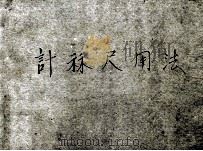 計算尺用法